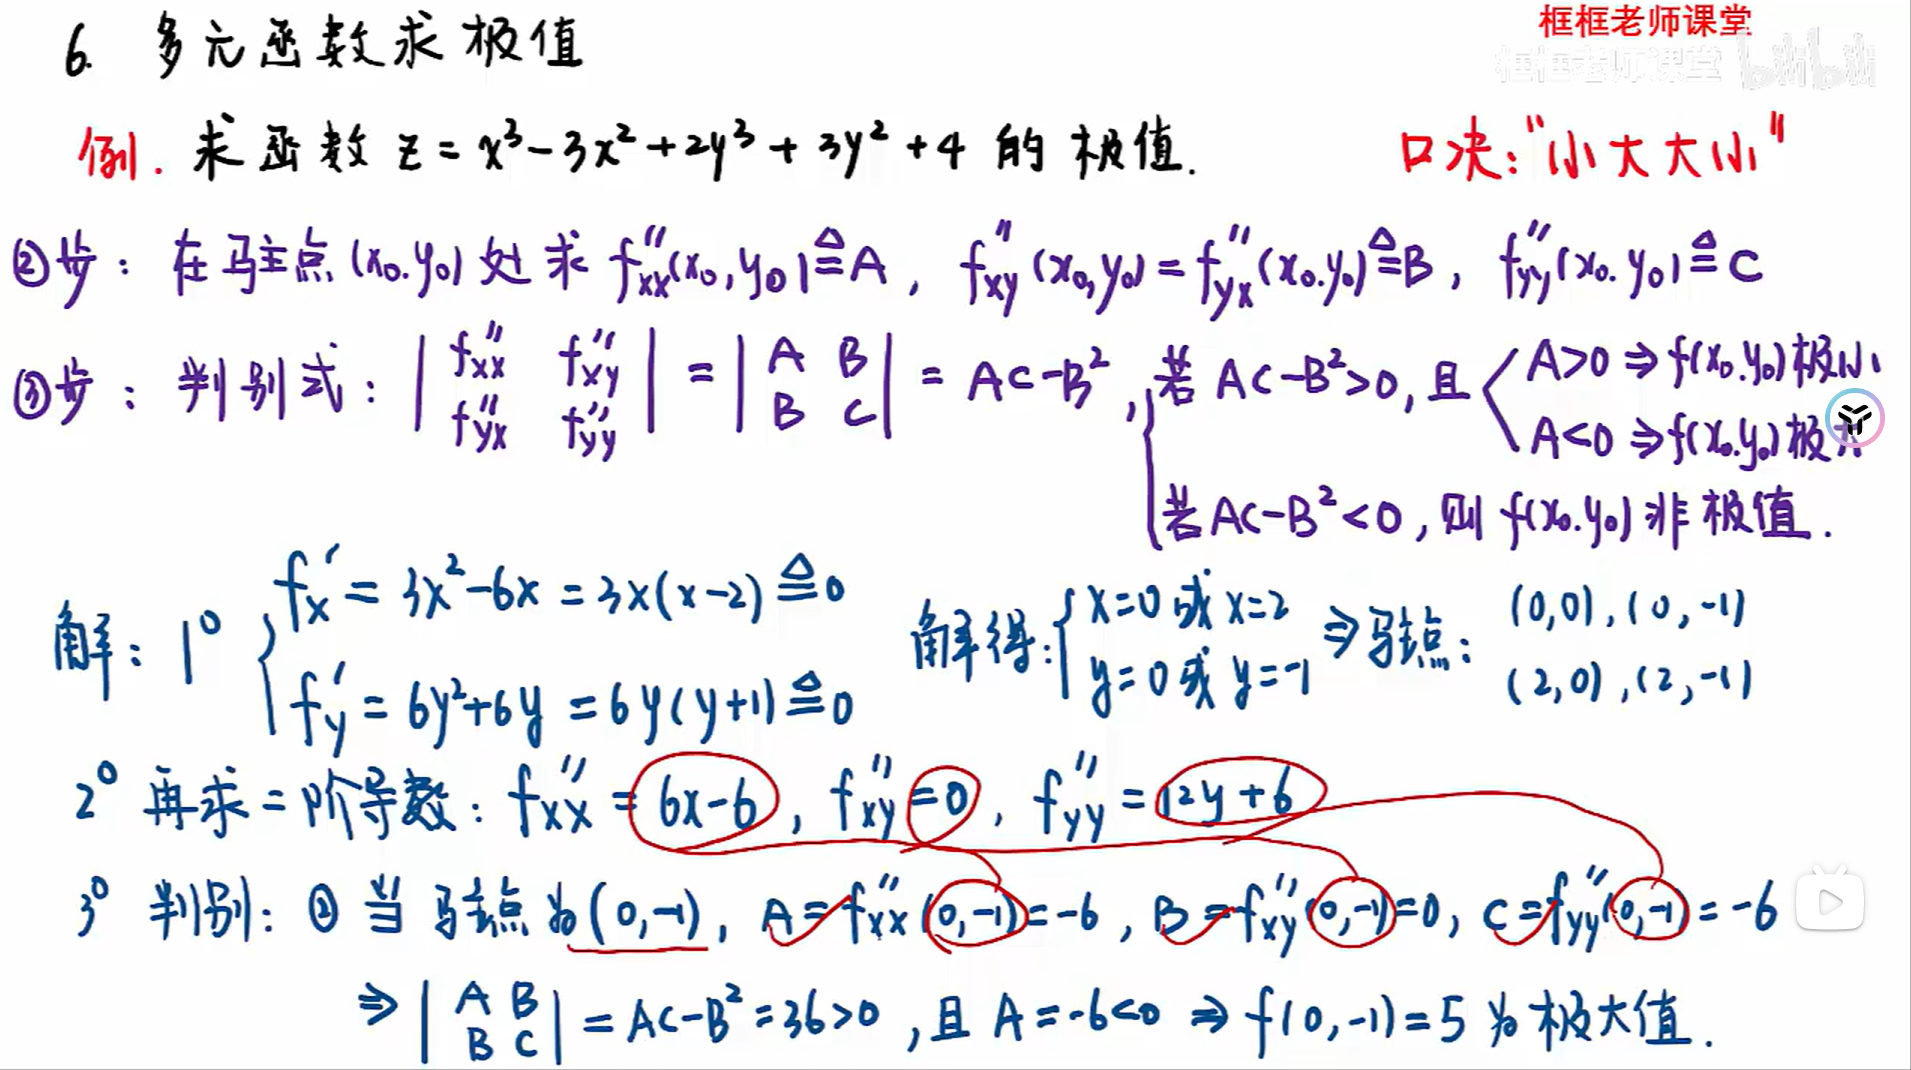 框框老师课堂
框框老师课堂 bilibili
6. 多元函数求极值
例. 求函数 z = x³-3x²+2y³+3y²+4 的极值.
口决:“小大大小”
②步: 在驻点(x₀.y₀)处求 f''xx(x₀,y₀)≜A, f''xy(x₀,y₀)=f''yx(x₀.y₀)≜B, f''yy(x₀.y₀)≜C
③步: 判别式: | f''xx f''xy | = | A B | = AC-B², 若 AC-B²>0, 且 A>0 ⇒ f(x₀.y₀)极小
| f''yx f''yy | | B C | A<0 ⇒ f(x₀.y₀)极大
若 AC-B²<0, 则 f(x₀.y₀) 非极值.
解: 1⁰ { f'x = 3x²-6x = 3x(x-2) ≜ 0 解得: { x=0 或 x=2 ⇒ 驻点: (0,0), (0,-1)
f'y = 6y²+6y = 6y(y+1) ≜ 0 y=0 或 y=-1 (2,0), (2,-1)
2⁰ 再求二阶导数: f''xx = 6x-6, f''xy = 0, f''yy = 12y+6
3⁰ 判别: ② 当驻点为(0,-1), A = f''xx(0,-1) = -6, B = f''xy(0,-1) = 0, C = f''yy(0,-1) = -6
⇒ | A B | = AC-B² = 36>0, 且 A = -6<0 ⇒ f(0,-1) = 5 为极大值.
| B C |